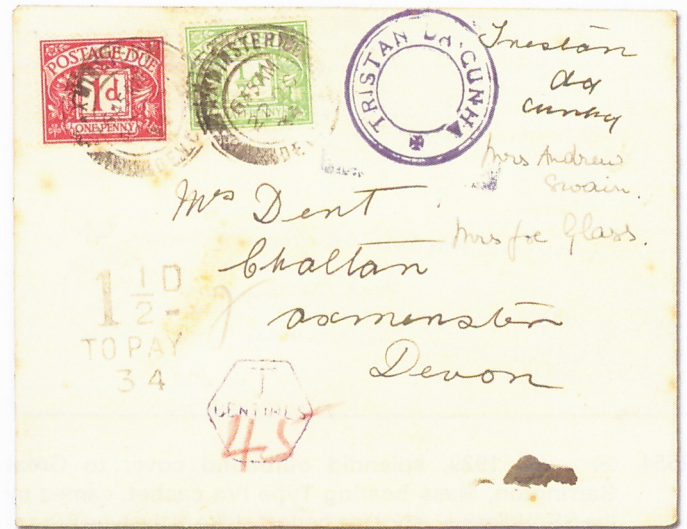 POSTAGE·DUE
1d
ONE·PENNY
TRISTAN DA·CUNHA
Tristan
da
Cunha
Mrs Andrew
Swain.
Mrs Joe Glass.
Mrs Dent
Chaltan
axmenster
Devon
1½D
TO PAY
34
T
CENTIMES
45